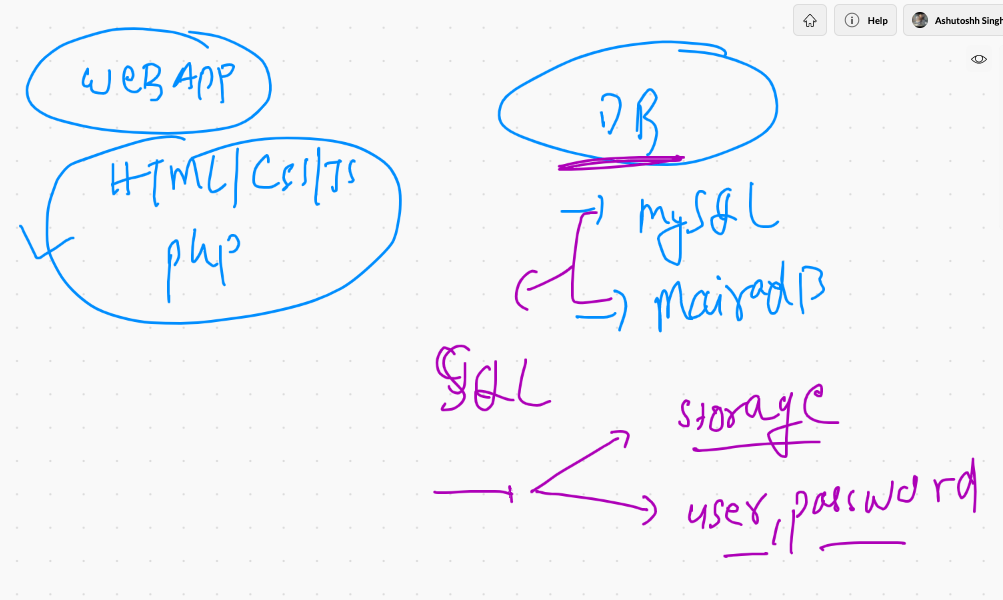 Help
Ashutoshh Singh
WEB APP
HTML/CSS/JS
php
DB
mySQL
MairadB
SQL
storage
user, password